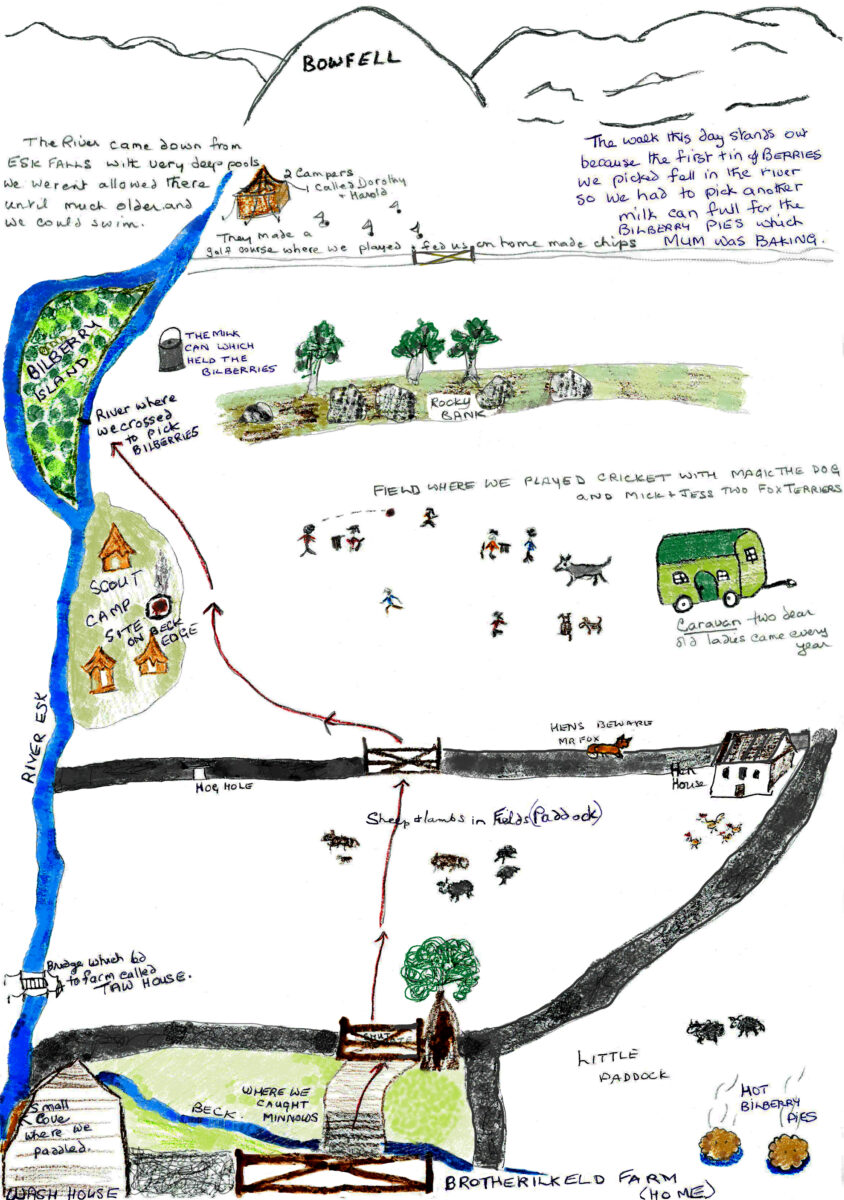 BOWFELL
The River came down from
ESK FALLS with very deep pools
we werent allowed there
until much older and
we could swim.
2 Campers
called Dorothy
+ Harold
They made a
golf course where we played + fed us on home made chips
The walk this day stands out
because the first tin of BERRIES
we picked fell in the river
so we had to pick another
milk can full for the
BILBERRY PIES which
MUM WAS BAKING.
BILBERRY
ISLAND
THE MILK
CAN WHICH
HELD THE
BILBERRIES
River where
we crossed
to pick
BILBERRIES
ROCKY
BANK
FIELD WHERE WE PLAYED CRICKET WITH MAGIC THE DOG
AND MICK + JESS TWO FOX TERRIERS
SCOUT
CAMP
SITE
ON BECK
EDGE
Caravan two dear
old ladies came every
year
RIVER ESK
HENS BEWARE
MR FOX
Hen
House
HOG HOLE
Sheep + lambs in Fields (Paddock)
Bridge which led
to farm called
TAW HOUSE.
SHUT
LITTLE
PADDOCK
HOT
BILBERRY
PIES
WHERE WE
CAUGHT
MINNOWS
BECK.
Small
cove
where we
paddled.
WASH HOUSE
BROTHERILKELD FARM
(HOME)